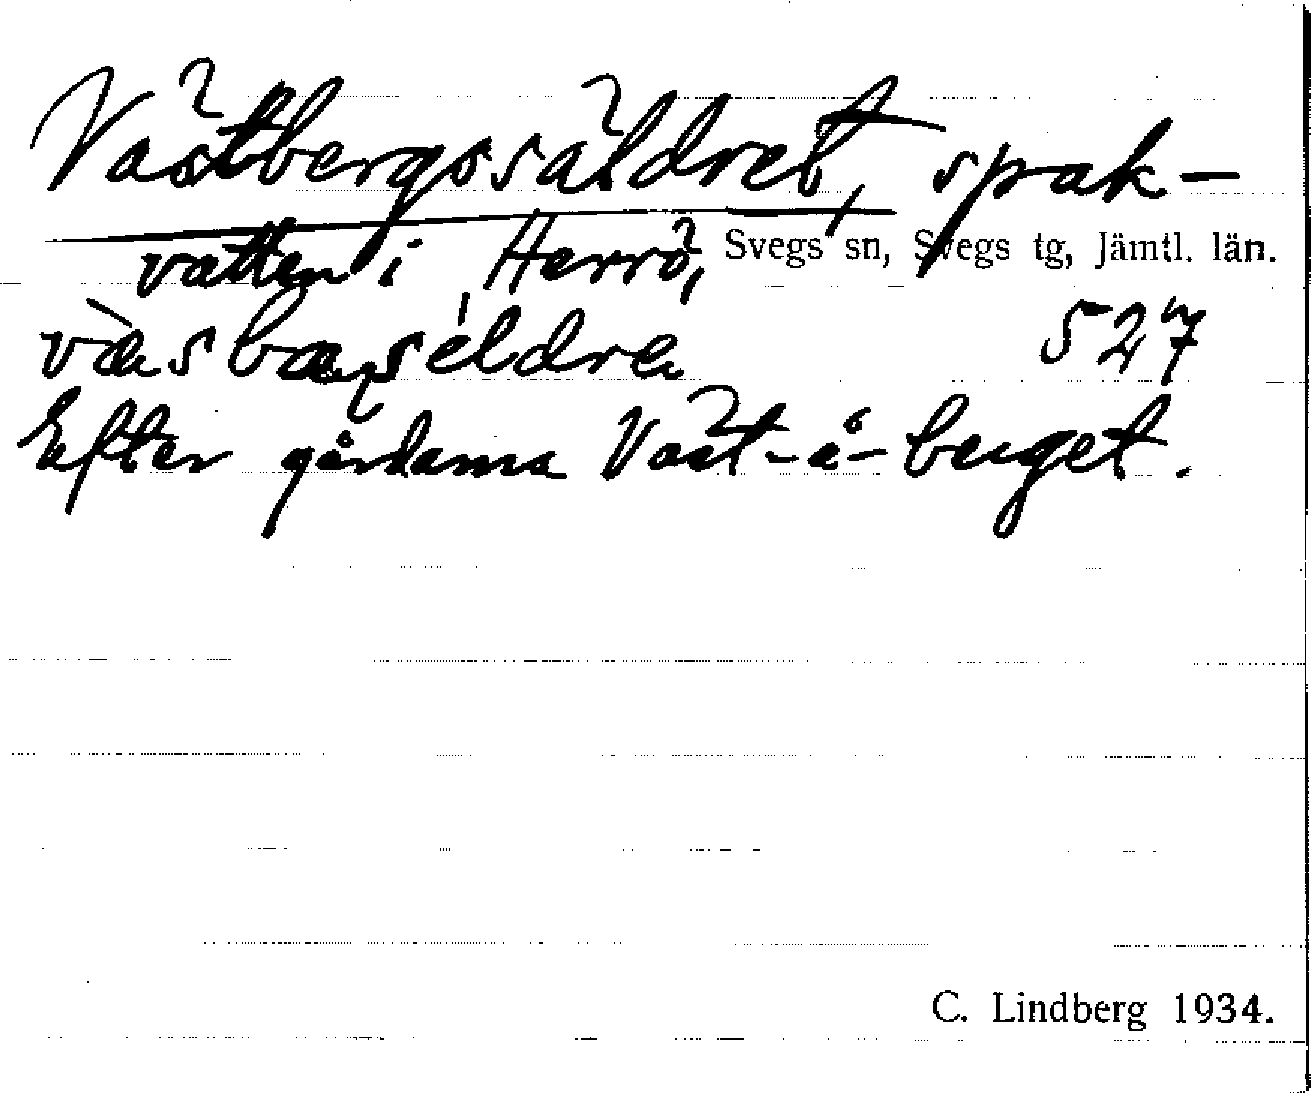 Västbergssäldret, spak-
vatten i Herrö, Svegs sn, Svegs tg, Jämtl. län.
væ̀sbæɳséldrə 527
Efter gårdarna Väst-å-berget.
C. Lindberg 1934.